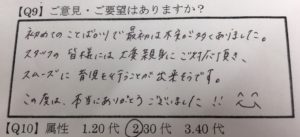 【Q9】ご意見・ご要望はありますか？
初めてのことばかりで最初は不安が多くありました。
スタッフの皆様には大変親身にご対応頂き、
スムーズに育児を行うことが出来そうです。
この度は、本当にありがとうございました!!
【Q10】属性 1.20代 2.30代 3.40代